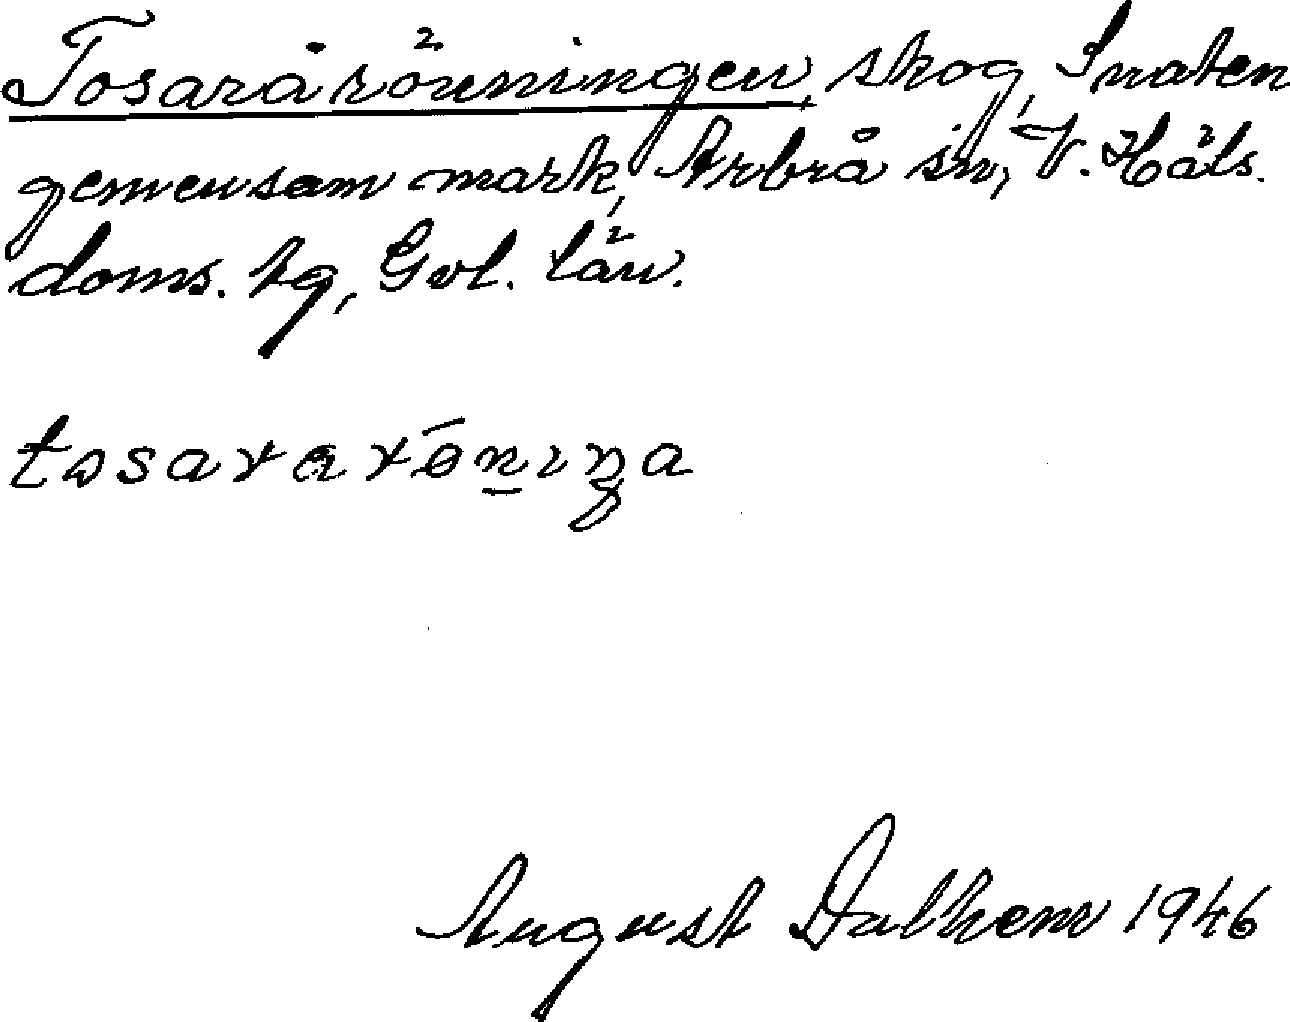 Tosarårönningen, skog, Snaten
gemensam mark, Arbrå sn, V. Häls.
doms. tg, Gvl. län.
tosararöniŋa
August Dalhem 1946